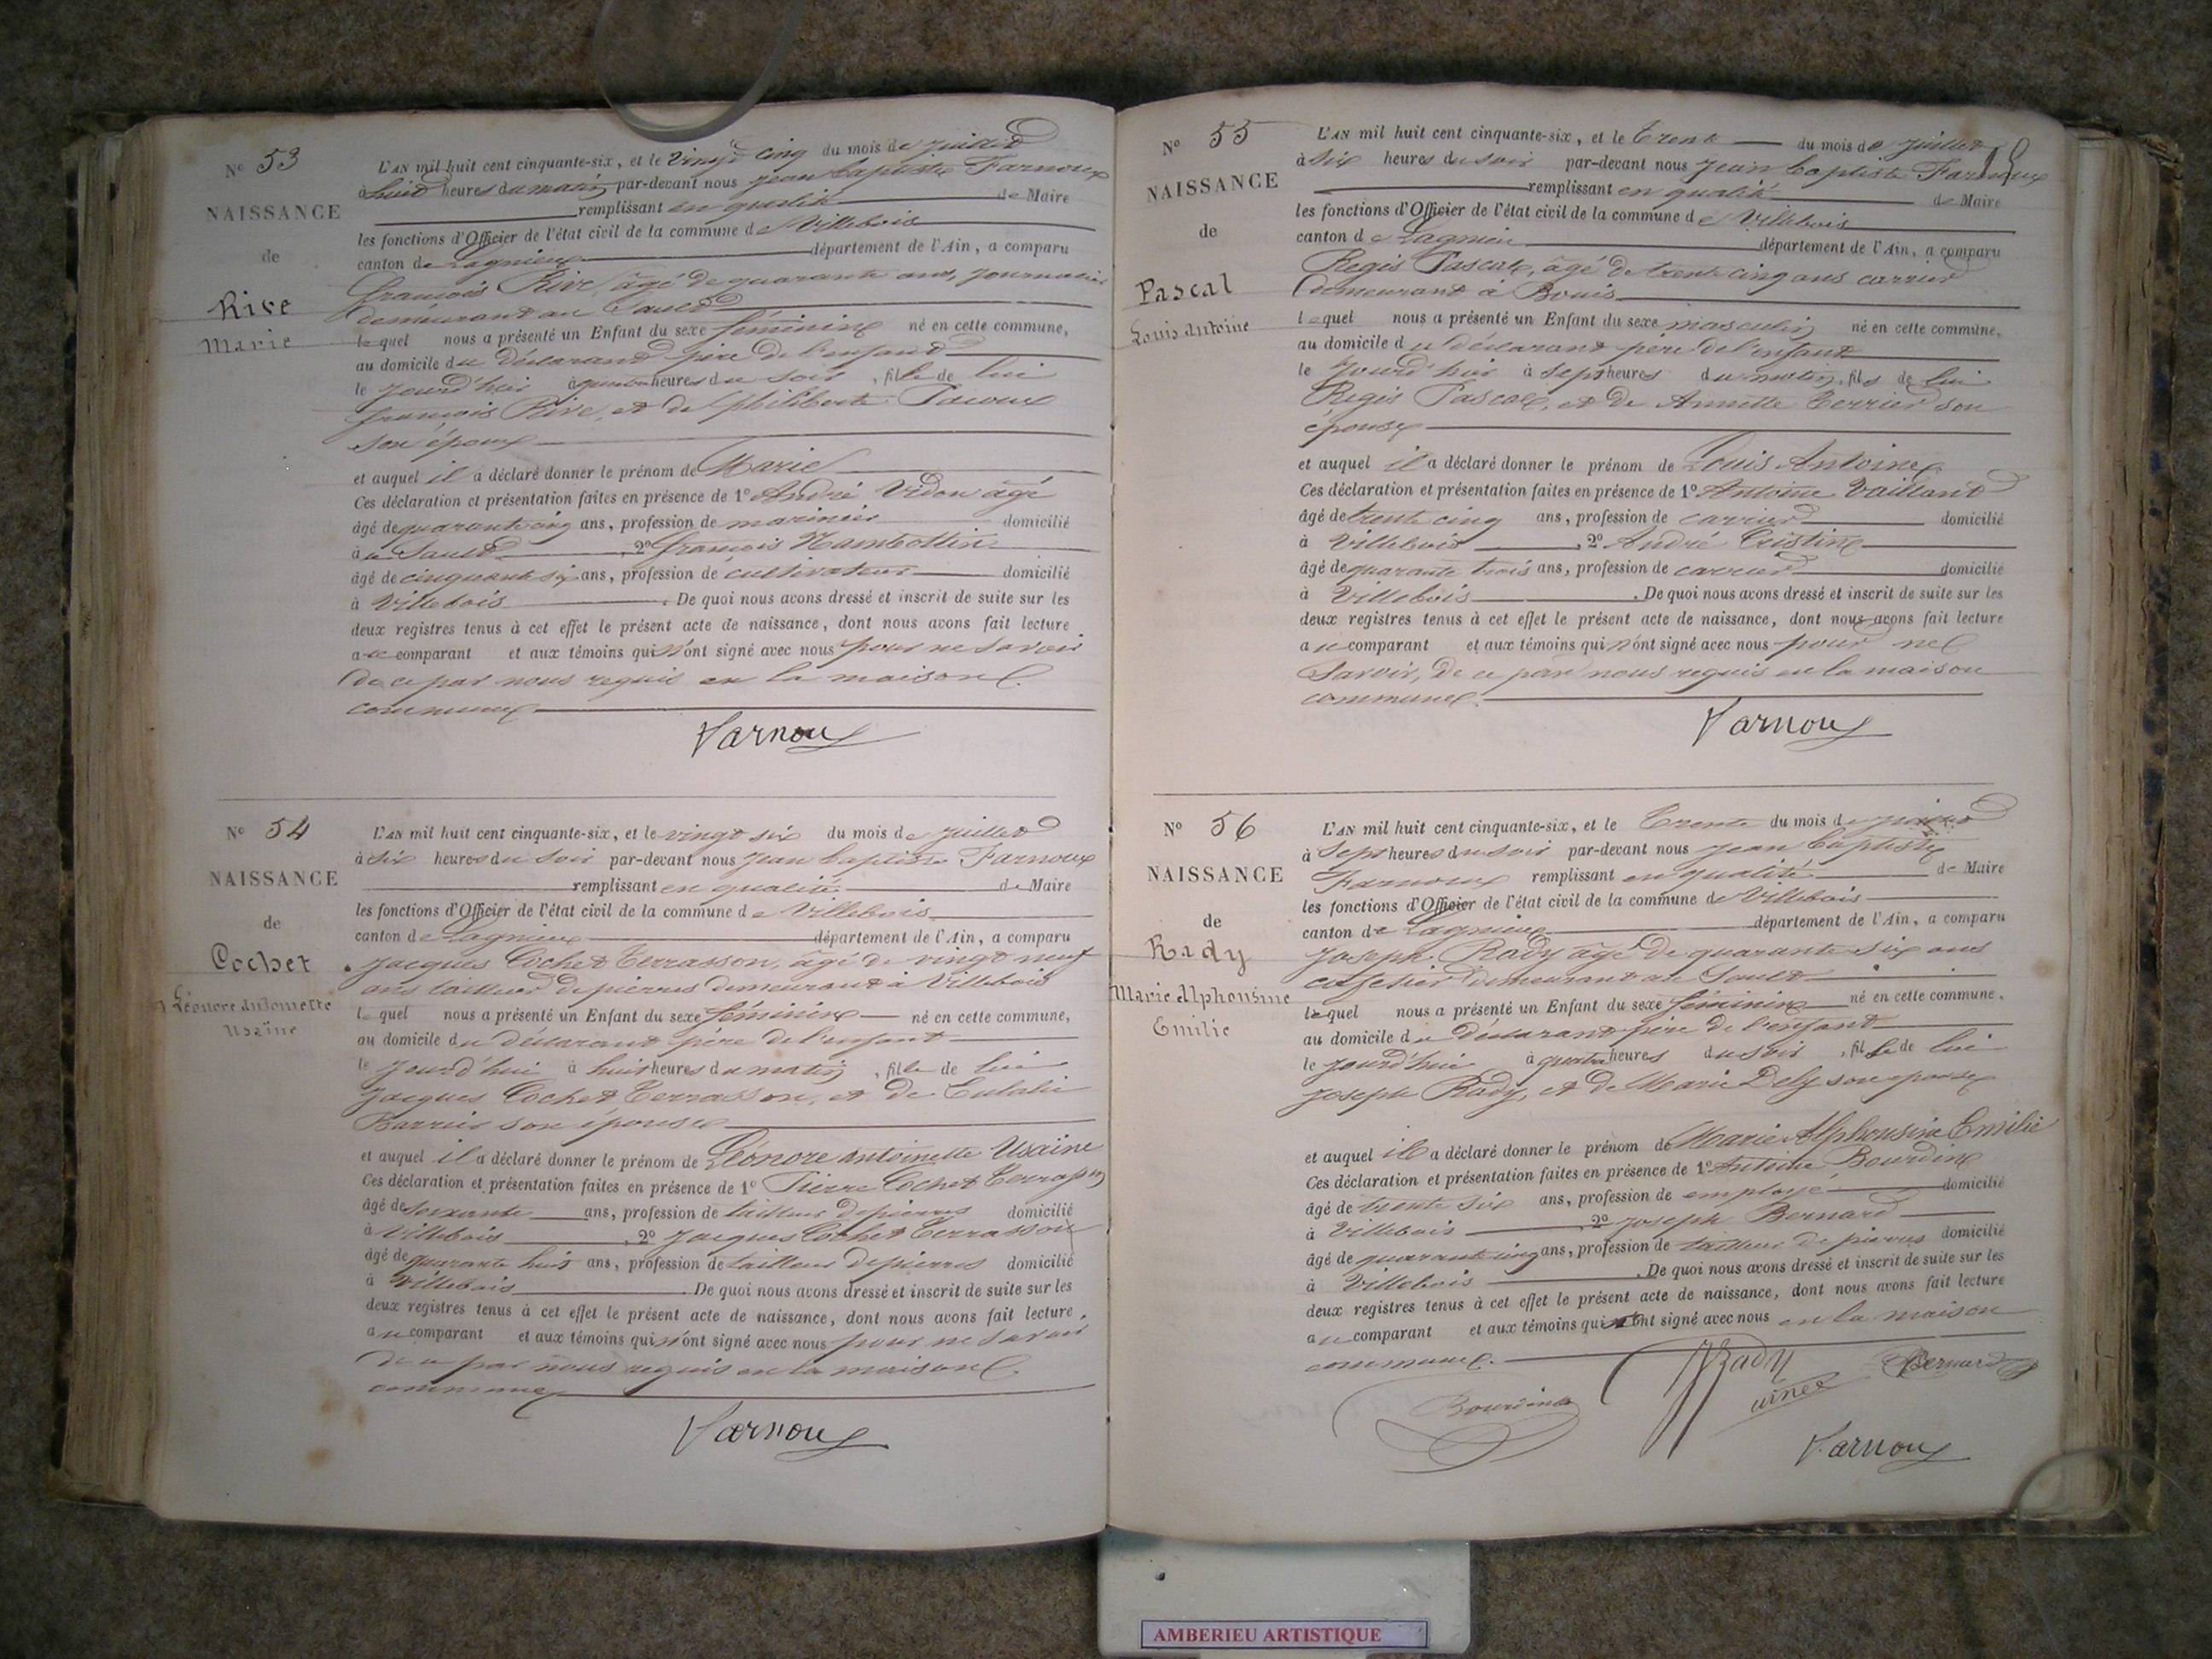 N° 53
NAISSANCE
de
Rive
Marie
L'AN mil huit cent cinquante-six, et le vingt cinq du mois de juillet
à huit heures du matin par-devant nous jean baptiste Farnoux
remplissant en qualité de Maire
les fonctions d'Officier de l'état civil de la commune de Villebois
canton de Lagnieux département de l'Ain, a comparu
françois Rive, âgé de quarante ans, journalier
demeurant au Sault
lequel nous a présenté un Enfant du sexe féminin né en cette commune,
au domicile du déclarant père de l'enfant
le jourd'hui à heures du soir, fille de lui
françois Rive, et de philiberte
son épouse
et auquel il a déclaré donner le prénom de Marie
Ces déclaration et présentation faites en présence de 1° André Vidon âgé
âgé de quarante cinq ans, profession de marinier domicilié
à u Sault, 2° françois
âgé de cinquante six ans, profession de cultivateur domicilié
à Villebois. De quoi nous avons dressé et inscrit de suite sur les
deux registres tenus à cet effet le présent acte de naissance, dont nous avons fait lecture
au comparant et aux témoins qui n'ont signé avec nous pour ne savoir
de ce par nous requis en la maison
commune
Varnoux
N° 54
NAISSANCE
de
Cochet
Léonore antoinette
Usaïne
L'AN mil huit cent cinquante-six, et le vingt six du mois de juillet
à six heures du soir par-devant nous jean baptiste Farnoux
remplissant en qualité de Maire
les fonctions d'Officier de l'état civil de la commune de Villebois
canton de Lagnieux département de l'Ain, a comparu
jacques Cochet Terrasson, âgé de vingt neuf
ans tailleur de pierres demeurant à Villebois
lequel nous a présenté un Enfant du sexe féminin né en cette commune,
au domicile du déclarant père de l'enfant
le jourd'hui à huit heures du matin, fille de lui
jacques Cochet Terrasson, et de Eulalie
Barrier son épouse
et auquel il a déclaré donner le prénom de Léonore antoinette Usaïne
Ces déclaration et présentation faites en présence de 1° Pierre Cochet Terrasson
âgé de soixante ans, profession de tailleur de pierres domicilié
à Villebois, 2° jacques Cochet Terrasson
âgé de quarante huit ans, profession de tailleur de pierres domicilié
à Villebois. De quoi nous avons dressé et inscrit de suite sur les
deux registres tenus à cet effet le présent acte de naissance, dont nous avons fait lecture
au comparant et aux témoins qui n'ont signé avec nous pour ne savoir
de ce par nous requis en la maison
commune
Varnoux
N° 55
NAISSANCE
de
Pascal
Louis Antoine
L'AN mil huit cent cinquante-six, et le trente du mois de juillet
à six heures du soir par-devant nous jean baptiste Farnoux
remplissant en qualité de Maire
les fonctions d'Officier de l'état civil de la commune de Villebois
canton de Lagnieu département de l'Ain, a comparu
Regis Pascal, âgé de trente cinq ans carrier
demeurant à Bouis
lequel nous a présenté un Enfant du sexe masculin né en cette commune,
au domicile du déclarant père de l'enfant
le jourd'hui à sept heures du matin, fils de lui
Regis Pascal, et de Annette Terrier son
épouse
et auquel il a déclaré donner le prénom de Louis Antoine
Ces déclaration et présentation faites en présence de 1° Antoine Vaillant
âgé de trente cinq ans, profession de carrier domicilié
à Villebois, 2° André Cristin
âgé de quarante trois ans, profession de carrier domicilié
à Villebois. De quoi nous avons dressé et inscrit de suite sur les
deux registres tenus à cet effet le présent acte de naissance, dont nous avons fait lecture
au comparant et aux témoins qui n'ont signé avec nous pour ne
savoir, de ce par nous requis en la maison
commune
Varnoux
N° 56
NAISSANCE
de
Rady
Marie Alphonsine
Emilie
L'AN mil huit cent cinquante-six, et le trente du mois de
à sept heures du soir par-devant nous jean baptiste
Farnoux remplissant en qualité de Maire
les fonctions d'Officier de l'état civil de la commune de Villebois
canton de Lagnieux département de l'Ain, a comparu
joseph Rady âgé de quarante six ans
demeurant au Sault
lequel nous a présenté un Enfant du sexe féminin né en cette commune,
au domicile du déclarant père de l'enfant
le jourd'hui à quatre heures du soir, fille de lui
joseph Rady, et de Marie Dely son épouse
et auquel il a déclaré donner le prénom de Marie Alphonsine Emilie
Ces déclaration et présentation faites en présence de 1° Antoine Bourdin
âgé de trente six ans, profession de employé domicilié
à Villebois, 2° joseph Bernard
âgé de quarante cinq ans, profession de tailleur de pierres domicilié
à Villebois. De quoi nous avons dressé et inscrit de suite sur les
deux registres tenus à cet effet le présent acte de naissance, dont nous avons fait lecture
au comparant et aux témoins qui ont signé avec nous en la maison
commune.
Rady Bernard
Bourdin ainé
Varnoux
AMBERIEU ARTISTIQUE